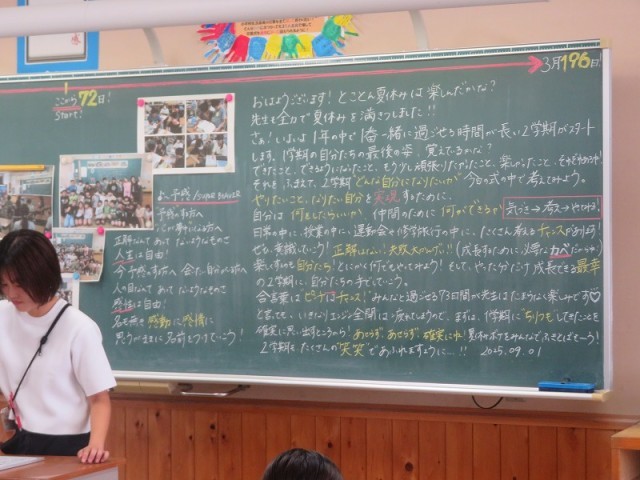 ここから72日!
START!
3月196日!
おはようございます! とことん夏休みは楽しんだかな?
先生も全力で夏休みを満きつしました!!
さぁ!いよいよ1年の中で1番一緒に過ごせる時間が長い2学期がスタート
します。1学期の自分たちの最後の姿、覚えてるかな?
できたこと、できるようになったこと、もう少し頑張りたかったこと、楽しかったこと、
それをふまえて、2学期どんな自分になりたいか今日の式の中で考えてみよう。
やりたいこと、なりたい自分を実現するために、
自分は何をしたらいいか、仲間のために何ができるか
気づき→考え→やってみる!
日常の中に、授業の中に、運動会や修学旅行の中に、たくさん考えるチャンスがあります!
ぜひ、意識していこう! 正解はない! 失敗大かんげい!! (成長するために必要なカベだからね)
楽しすのも自分たち! とにかく何でもやってみよう! そして、やった分だけ成長できる最幸
の2学期に、自分たちの手でしていこう。
合言葉はピンチはチャンス! みんなと過ごせる73日間が先生はたまらなく楽しみです♡
と言っても、いきなりエンジン全開はつかれてしまうので、まずは、1学期に
確実に思い出すところから! あわらず、あせらず、確実にね!
2学期もたくさんの"笑笑"であふれますように…!! 2025.09.01
予感
予感のある方へ
心が夢中になる方へ
正解なんて あって ないようなものさ
人生は自由
今 予感のする方へ 会いたい自分がいる方へ
人の目なんて あって ないようなものさ
感性は自由!
名も無き感動に感情に
思うがままに 名前をつけていこう!